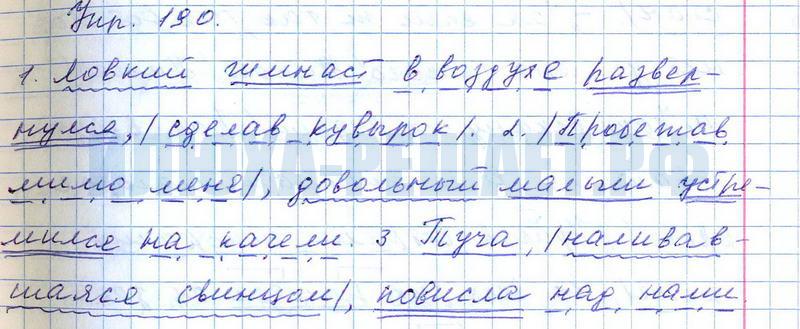 Упр. 190.
1. Ловкий гимнаст в воздухе развер-
нулся, / сделав кувырок /. 2. / Пробежав
мимо меня /, довольный малыш устре-
мился на качели. 3 Туча, / наливав-
шаяся свинцом /, повисла над нами.